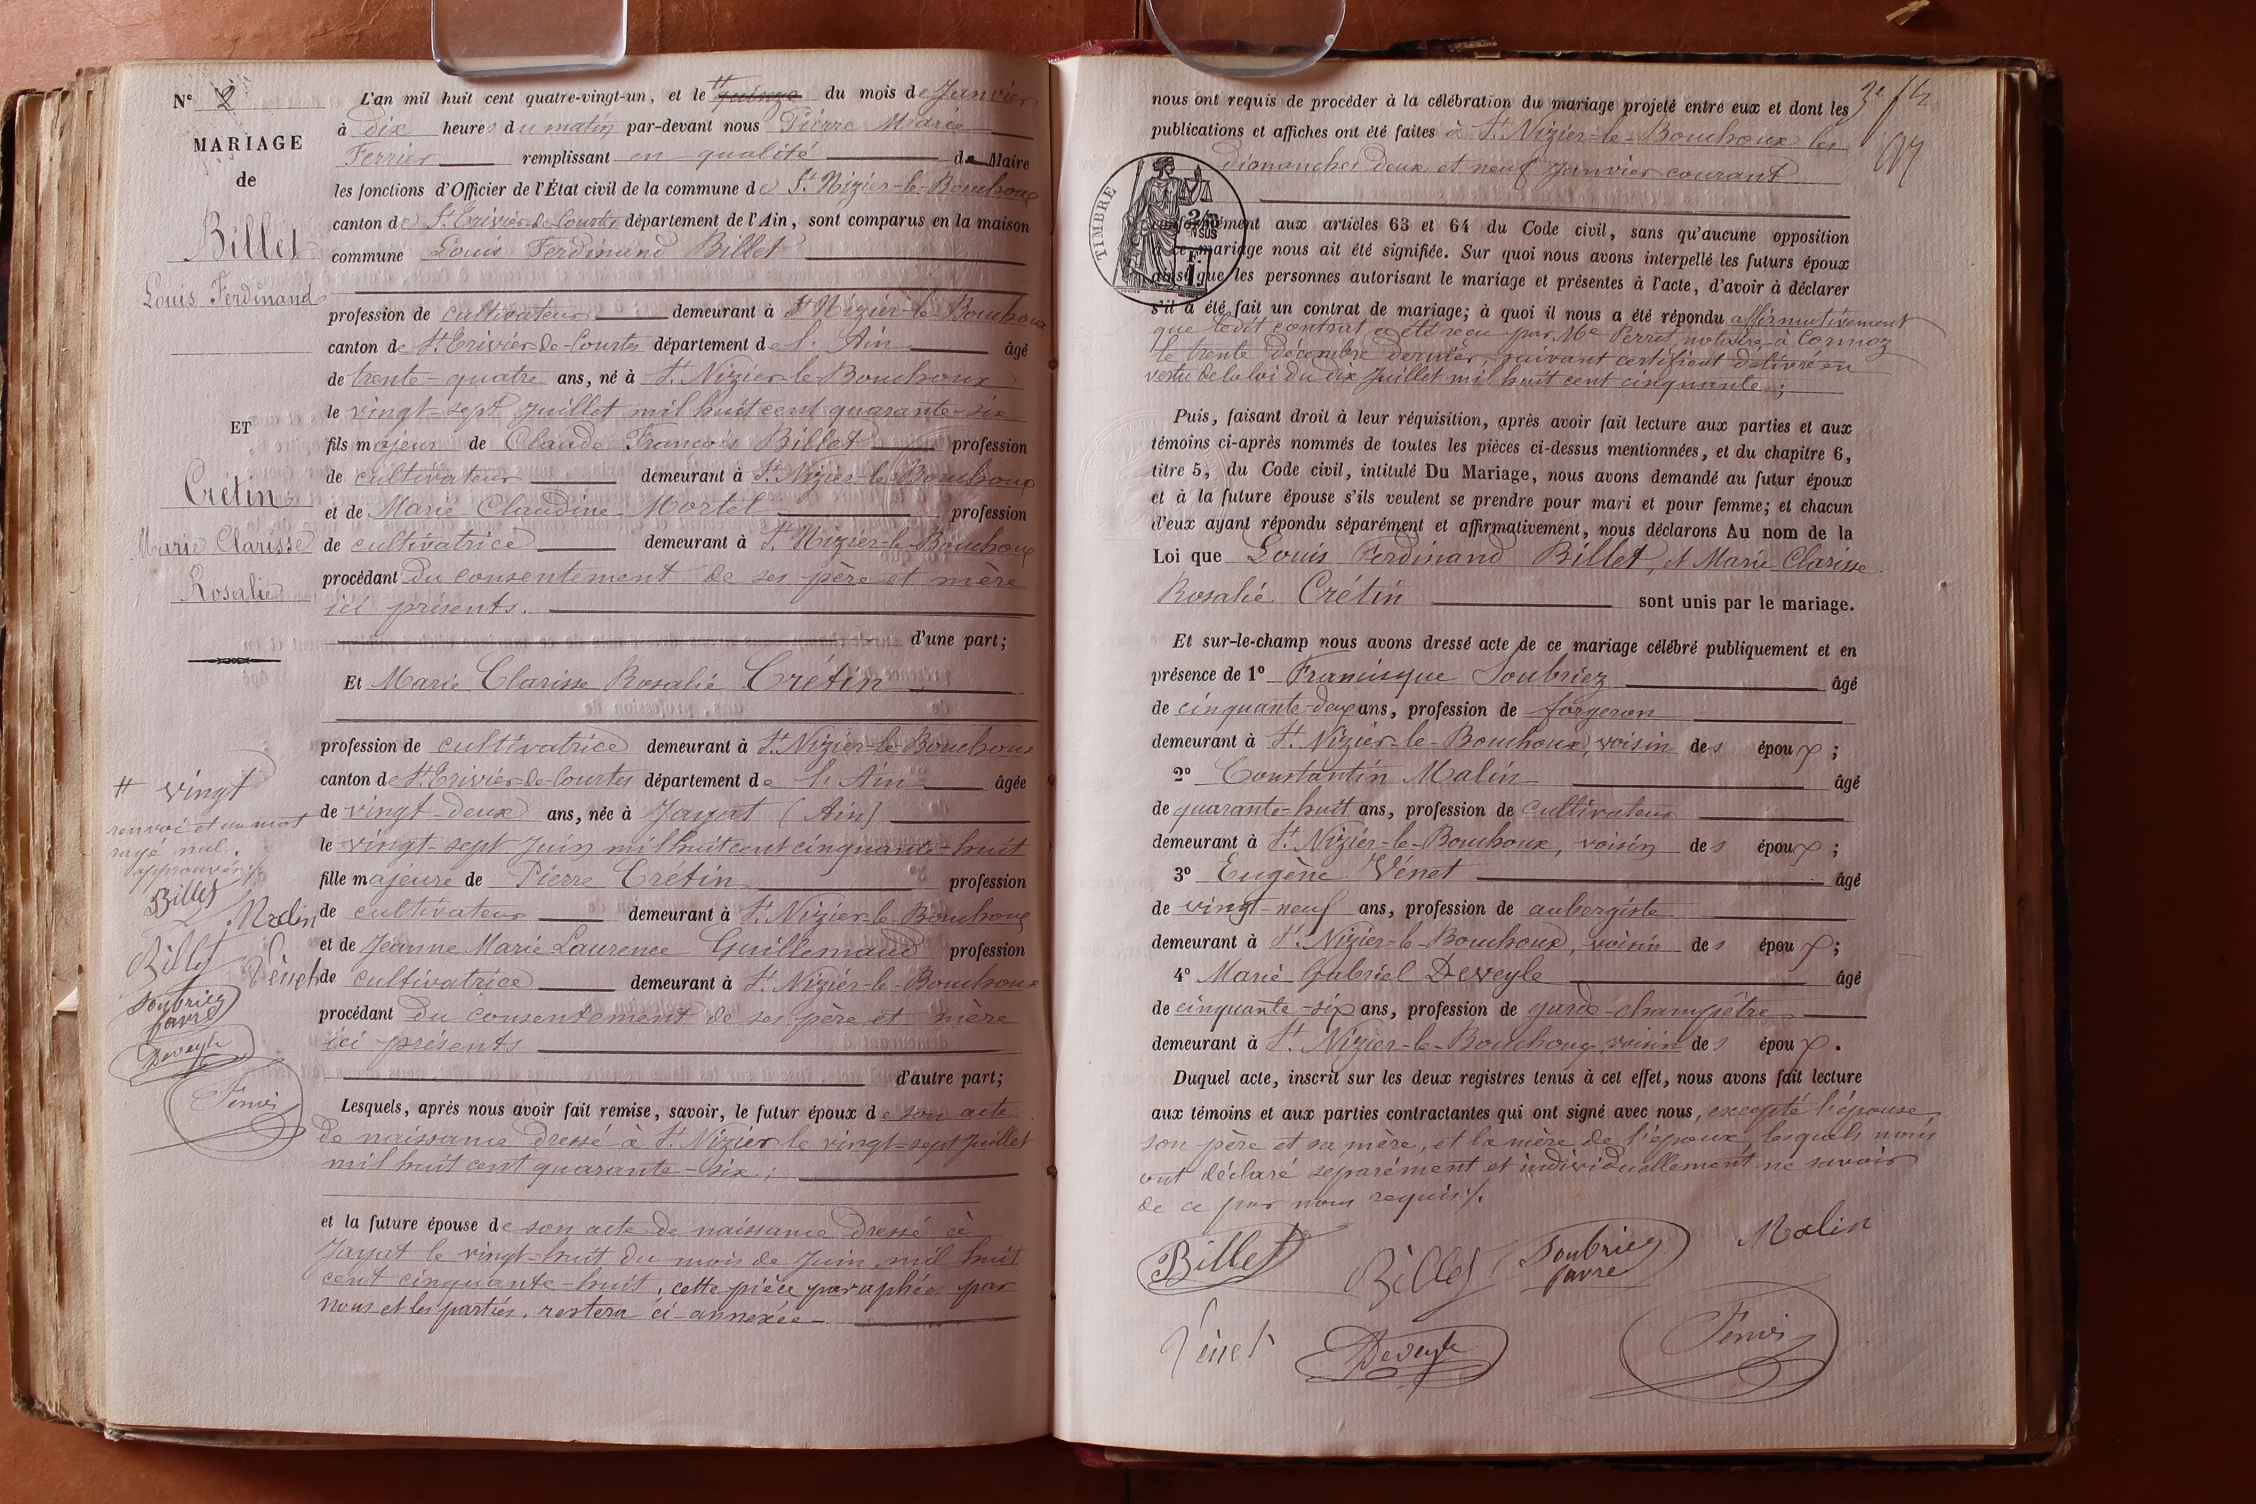 N° 2
MARIAGE
de
Billet
Louis Ferdinand
ET
Crétin
Marie Clarisse
Rosalie
# vingt
renvoi et un mot
rayé nul.
approuvés
Billet
Malin
Billet
Vénet
Soubriez
favre
Deveyle
L'an mil huit cent quatre-vingt-un, et le # quinze du mois de Janvier
à dix heures du matin par-devant nous Pierre Marie
Ferrier remplissant en qualité de Maire
les fonctions d'Officier de l'État civil de la commune de St. Nizier-le-Bouchoux
canton de St. Trivier-de-Courtes département de l'Ain, sont comparus en la maison
commune Louis Ferdinand Billet
profession de cultivateur demeurant à St Nizier-le-Bouchoux
canton de St. Trivier-de-Courtes département de l'Ain âgé
de trente-quatre ans, né à St. Nizier-le-Bouchoux
le vingt-sept Juillet mil huit cent quarante-six
fils majeur de Claude François Billet profession
de cultivateur demeurant à St. Nizier-le-Bouchoux
et de Marie Claudine Mortel profession
de cultivatrice demeurant à St. Nizier-le-Bouchoux
procédant du consentement de ses père et mère
ici présents.
d'une part;
Et Marie Clarisse Rosalie Crétin
profession de cultivatrice demeurant à St. Nizier-le-Bouchoux
canton de St. Trivier-de-Courtes département de l'Ain âgée
de vingt-deux ans, née à Jayat (Ain)
le vingt-sept Juin mil huit cent cinquante-huit
fille majeure de Pierre Crétin profession
de cultivateur demeurant à St. Nizier-le-Bouchoux
et de Jeanne Marie Laurence Guillemaud profession
de cultivatrice demeurant à St. Nizier-le-Bouchoux
procédant du consentement de ses père et mère
ici présents
d'autre part;
Lesquels, après nous avoir fait remise, savoir, le futur époux de son acte
de naissance dressé à St. Nizier le vingt-sept Juillet
mil huit cent quarante-six;
et la future épouse de son acte de naissance dressé à
Jayat le vingt-huit du mois de Juin mil huit
cent cinquante-huit, cette pièce paraphée par
nous et les parties, restera ci-annexée
nous ont requis de procéder à la célébration du mariage projeté entre eux et dont les
publications et affiches ont été faites à St. Nizier-le-Bouchoux les
dimanches deux et neuf Janvier courant
TIMBRE
conformément aux articles 63 et 64 du Code civil, sans qu'aucune opposition
ce mariage nous ait été signifiée. Sur quoi nous avons interpellé les futurs époux
ainsi que les personnes autorisant le mariage et présentes à l'acte, d'avoir à déclarer
s'il a été fait un contrat de mariage; à quoi il nous a été répondu affirmativement
que ledit contrat a été reçu par Me Perret, notaire à Cormoz
le trente décembre dernier, suivant certificat délivré en
vertu de la loi du dix Juillet mil huit cent cinquante;
Puis, faisant droit à leur réquisition, après avoir fait lecture aux parties et aux
témoins ci-après nommés de toutes les pièces ci-dessus mentionnées, et du chapitre 6,
titre 5, du Code civil, intitulé Du Mariage, nous avons demandé au futur époux
et à la future épouse s'ils veulent se prendre pour mari et pour femme; et chacun
d'eux ayant répondu séparément et affirmativement, nous déclarons Au nom de la
Loi que Louis Ferdinand Billet, et Marie Clarisse
Rosalie Crétin sont unis par le mariage.
Et sur-le-champ nous avons dressé acte de ce mariage célébré publiquement et en
présence de 1° Francisque Soubriez âgé
de cinquante-deux ans, profession de forgeron
demeurant à St. Nizier-le-Bouchoux, voisin des époux;
2° Constantin Malin âgé
de quarante-huit ans, profession de cultivateur
demeurant à St. Nizier-le-Bouchoux, voisin des époux;
3° Eugène Vénet âgé
de vingt-neuf ans, profession de aubergiste
demeurant à St. Nizier-le-Bouchoux, voisin des époux;
4° Marie Gabriel Deveyle âgé
de cinquante-six ans, profession de garde-champêtre
demeurant à St. Nizier-le-Bouchoux, voisin des époux.
Duquel acte, inscrit sur les deux registres tenus à cet effet, nous avons fait lecture
aux témoins et aux parties contractantes qui ont signé avec nous, excepté l'épouse,
son père et sa mère, et la mère de l'époux, lesquels nous
ont déclaré séparément et individuellement ne savoir
de ce par nous requis.
Billet
Billet
Soubriez
favre
Malin
Vénet
Deveyle